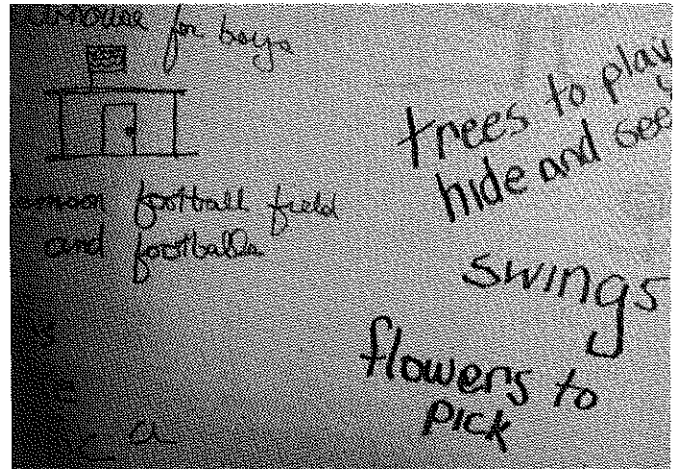 for boys
football field
and footballs
a
trees to play
hide and see
swings
flowers to
pick